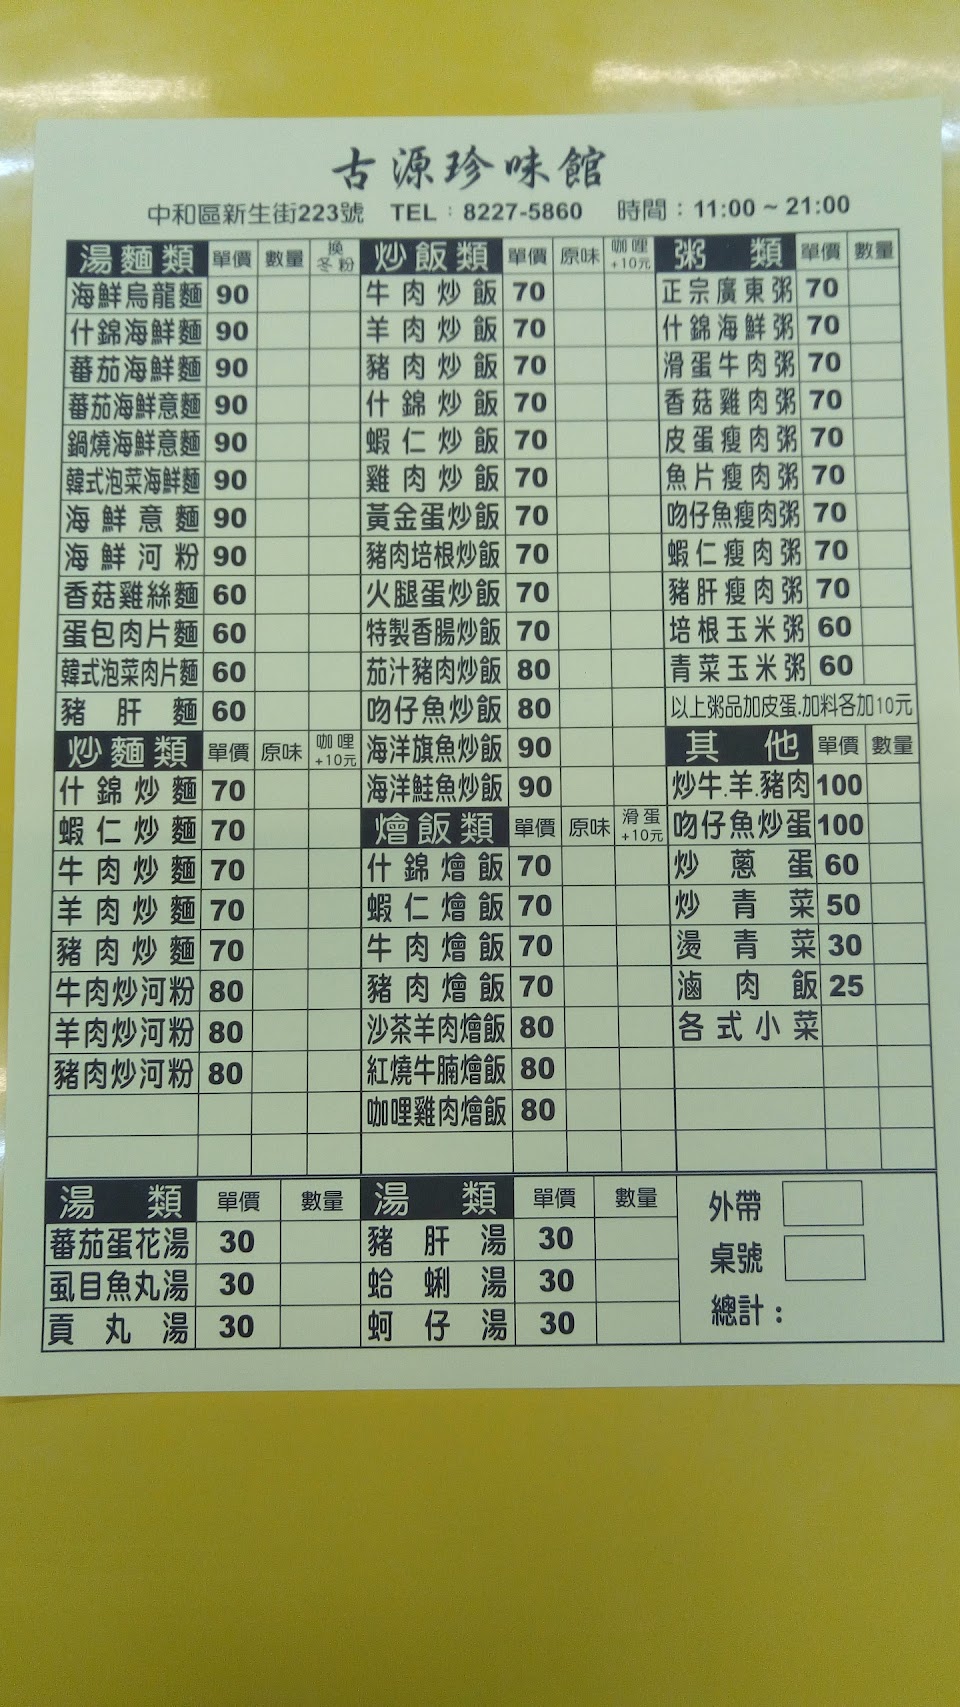 古源珍味館
中和區新生街223號 TEL：8227-5860 時間：11:00～21:00
湯麵類 單價 數量 換冬粉
海鮮烏龍麵 90
什錦海鮮麵 90
蕃茄海鮮麵 90
蕃茄海鮮意麵 90
鍋燒海鮮意麵 90
韓式泡菜海鮮麵 90
海鮮意麵 90
海鮮河粉 90
香菇雞絲麵 60
蛋包肉片麵 60
韓式泡菜肉片麵 60
豬肝麵 60
炒麵類 單價 原味 咖哩+10元
什錦炒麵 70
蝦仁炒麵 70
牛肉炒麵 70
羊肉炒麵 70
豬肉炒麵 70
牛肉炒河粉 80
羊肉炒河粉 80
豬肉炒河粉 80
炒飯類 單價 原味 咖哩+10元
牛肉炒飯 70
羊肉炒飯 70
豬肉炒飯 70
什錦炒飯 70
蝦仁炒飯 70
雞肉炒飯 70
黃金蛋炒飯 70
豬肉培根炒飯 70
火腿蛋炒飯 70
特製香腸炒飯 70
茄汁豬肉炒飯 80
吻仔魚炒飯 80
海洋旗魚炒飯 90
海洋鮭魚炒飯 90
燴飯類 單價 原味 滑蛋+10元
什錦燴飯 70
蝦仁燴飯 70
牛肉燴飯 70
豬肉燴飯 70
沙茶羊肉燴飯 80
紅燒牛腩燴飯 80
咖哩雞肉燴飯 80
粥類 單價 數量
正宗廣東粥 70
什錦海鮮粥 70
滑蛋牛肉粥 70
香菇雞肉粥 70
皮蛋瘦肉粥 70
魚片瘦肉粥 70
吻仔魚瘦肉粥 70
蝦仁瘦肉粥 70
豬肝瘦肉粥 70
培根玉米粥 60
青菜玉米粥 60
以上粥品加皮蛋.加料各加10元
其他 單價 數量
炒牛.羊.豬肉 100
吻仔魚炒蛋 100
炒蔥蛋 60
炒青菜 50
燙青菜 30
滷肉飯 25
各式小菜
湯類 單價 數量
蕃茄蛋花湯 30
虱目魚丸湯 30
貢丸湯 30
湯類 單價 數量
豬肝湯 30
蛤蜊湯 30
蚵仔湯 30
外帶
桌號
總計：